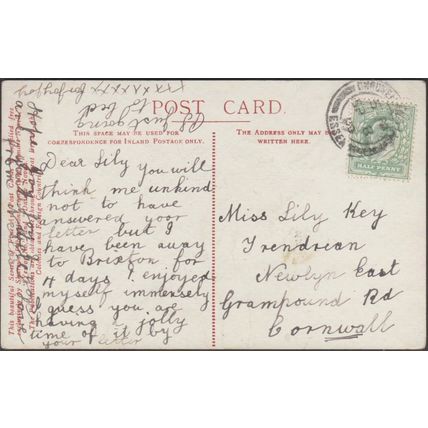 POST CARD.
THIS SPACE MAY BE USED FOR
CORRESPONDENCE FOR INLAND POSTAGE ONLY.
THE ADDRESS ONLY MAY BE
WRITTEN HERE.
HALFPENNY
Dear Lily you will
think me unkind
not to have
answered your
letter but I
have been away
to Brixton for
4 days I enjoyed
myself immensely
I guess you are
having a jolly
time of it by
your letter
Miss Lily Key
Trendrean
Newlyn East
Grampound Rd
Cornwall
just going
to bed
xxxxxxx
Hope
This beautiful Series of Fine Art Post Cards is